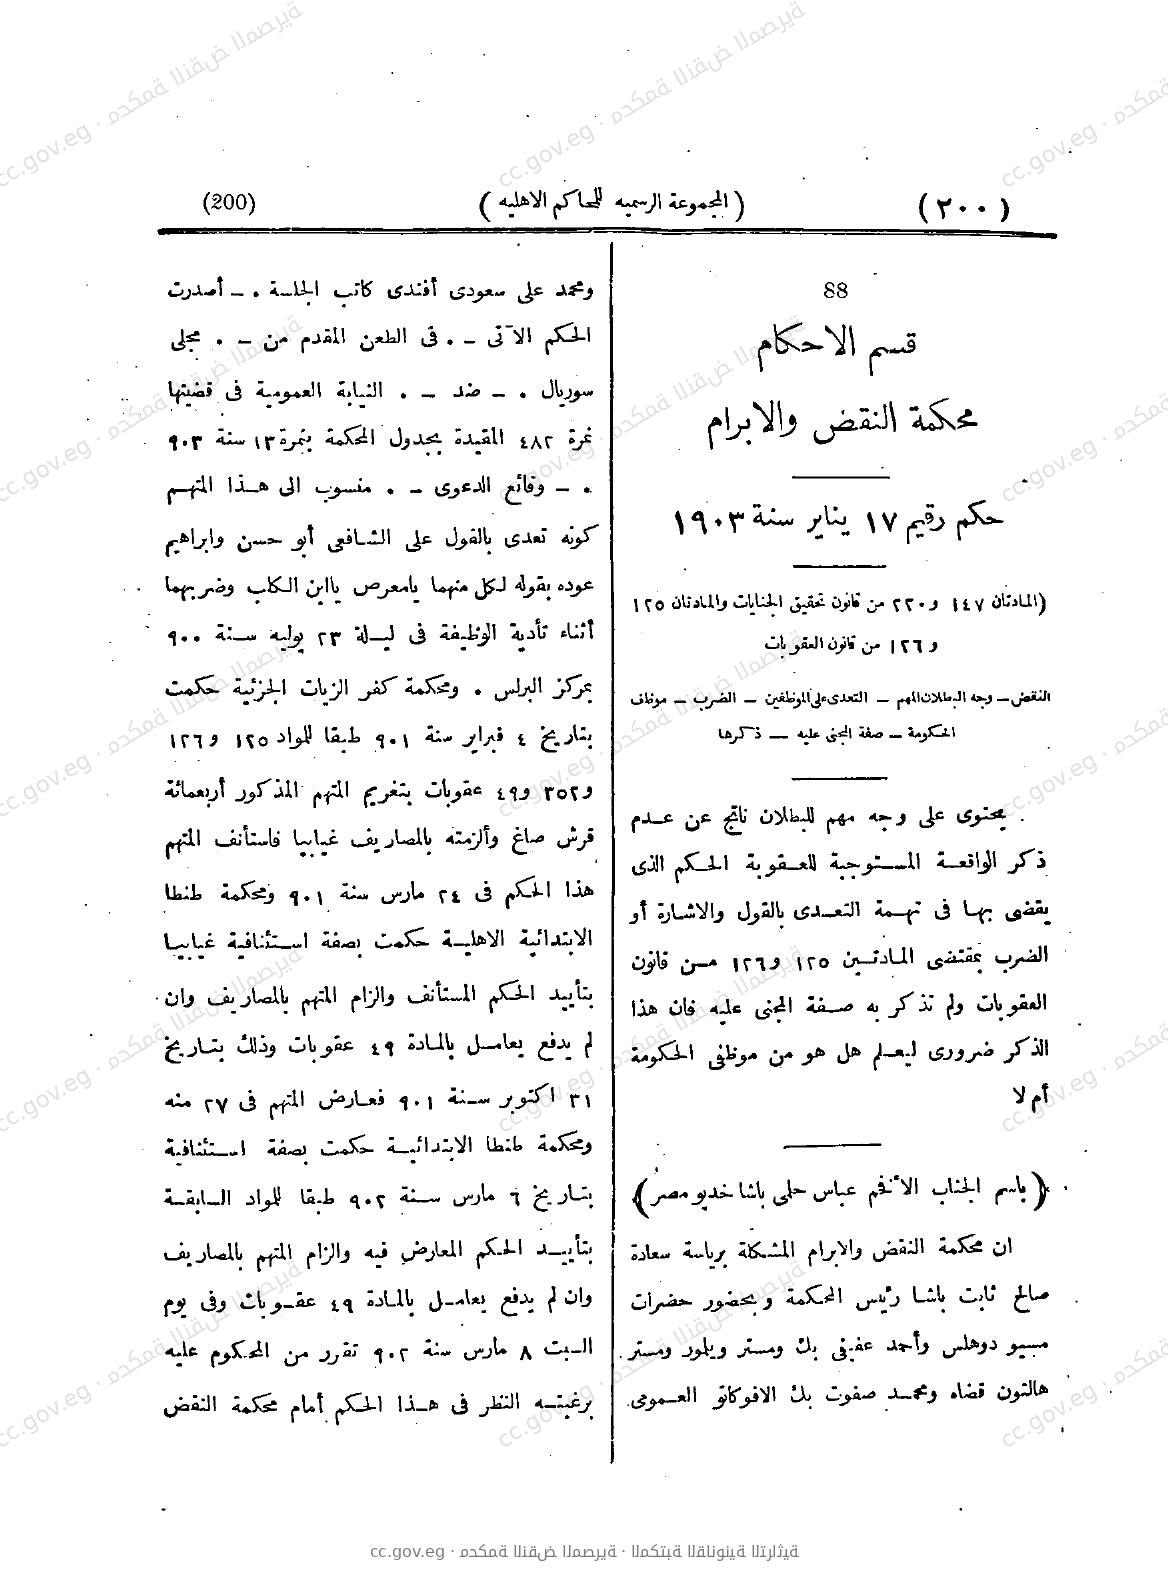 (٢٠٠)
(المجموعة الرسميه للمحاكم الاهليه)
(200)
88
قسم الاحكام
محكمة النقض والابرام
حكم رقيم ١٧ يناير سنة ١٩٠٣
(المادتان ١٤٧ و٢٢٠ من قانون تحقيق الجنايات والمادتان ١٢٥
و ١٢٦ من قانون العقوبات
النقض – وجه البطلان المهم – التعدى على الموظفين – الضرب – موظف
الحكومة – صفة المجنى عليه – ذكرها
يحتوى على وجه مهم للبطلان ناتج عن عدم
ذكر الواقعة المستوجبة للعقوبة الحكم الذى
يقضى بها فى تهمة التعدى بالقول والاشارة أو
الضرب بمقتضى المادتين ١٢٥ و١٢٦ من قانون
العقوبات ولم تذكر به صفة المجنى عليه فان هذا
الذكر ضرورى ليعلم هل هو من موظفى الحكومة
أم لا
(باسم الجناب الأفخم عباس حلمى باشا خديو مصر)
ان محكمة النقض والابرام المشكلة برياسة سعادة
صالح ثابت باشا رئيس المحكمة وبحضور حضرات
مسيو دوهلس وأحمد عفيفى بك ومستر ويلمور ومستر
هالتون قضاه ومحمد صفوت بك الافوكاتو العمومى
ومحمد على سعودى أفندى كاتب الجلسة . – أصدرت
الحكم الآتى – . فى الطعن المقدم من – . مجلى
سوريال . – ضد – . النيابة العمومية فى قضيتها
نمرة ٤٨٢ المقيدة بجدول المحكمة بنمرة ١٣ سنة ٩٠٣
. – وقائع الدعوى – . منسوب الى هذا المتهم
كونه تعدى بالقول على الشافعى أبو حسن وابراهيم
عوده بقوله لكل منهما يامعرص ياابن الكاب وضربهما
أثناء تأدية الوظيفة فى ليلة ٢٣ يوليه سنة ٩٠٠
بمركز البرلس . ومحكمة كفر الزيات الجزئية حكمت
بتاريخ ٤ فبراير سنة ٩٠١ طبقا للمواد ١٢٥ و١٢٦
و٣٥٢ و٤٩ عقوبات بتغريم المتهم المذكور أربعمائة
قرش صاغ وألزمته بالمصاريف غيابيا فاستأنف المتهم
هذا الحكم فى ٢٤ مارس سنة ٩٠١ ومحكمة طنطا
الابتدائية الاهلية حكمت بصفة استئنافية غيابيا
بتأييد الحكم المستأنف والزام المتهم بالمصاريف وان
لم يدفع يعامل بالمادة ٤٩ عقوبات وذلك بتاريخ
٣١ اكتوبر سنة ٩٠١ فعارض المتهم فى ٢٧ منه
ومحكمة طنطا الابتدائية حكمت بصفة استئنافية
بتاريخ ٦ مارس سنة ٩٠٢ طبقا للمواد السابقة
بتأييد الحكم المعارض فيه والزام المتهم بالمصاريف
وان لم يدفع يعامل بالمادة ٤٩ عقوبات وفى يوم
السبت ٨ مارس سنة ٩٠٢ تقرر من المحكوم عليه
برغبته النظر فى هذا الحكم أمام محكمة النقض
cc.gov.eg · محكمة النقض المصرية · المكتبة القانونية التراثية